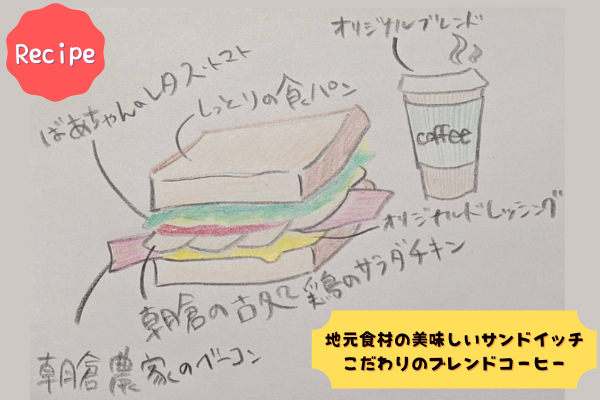 Recipe
オリジナルブレンド
ばあちゃんのレタス・トマト
しっとりの食パン
coffee
オリジナルドレッシング
朝倉の古処鶏のサラダチキン
朝倉農家のベーコン
地元食材の美味しいサンドイッチ
こだわりのブレンドコーヒー